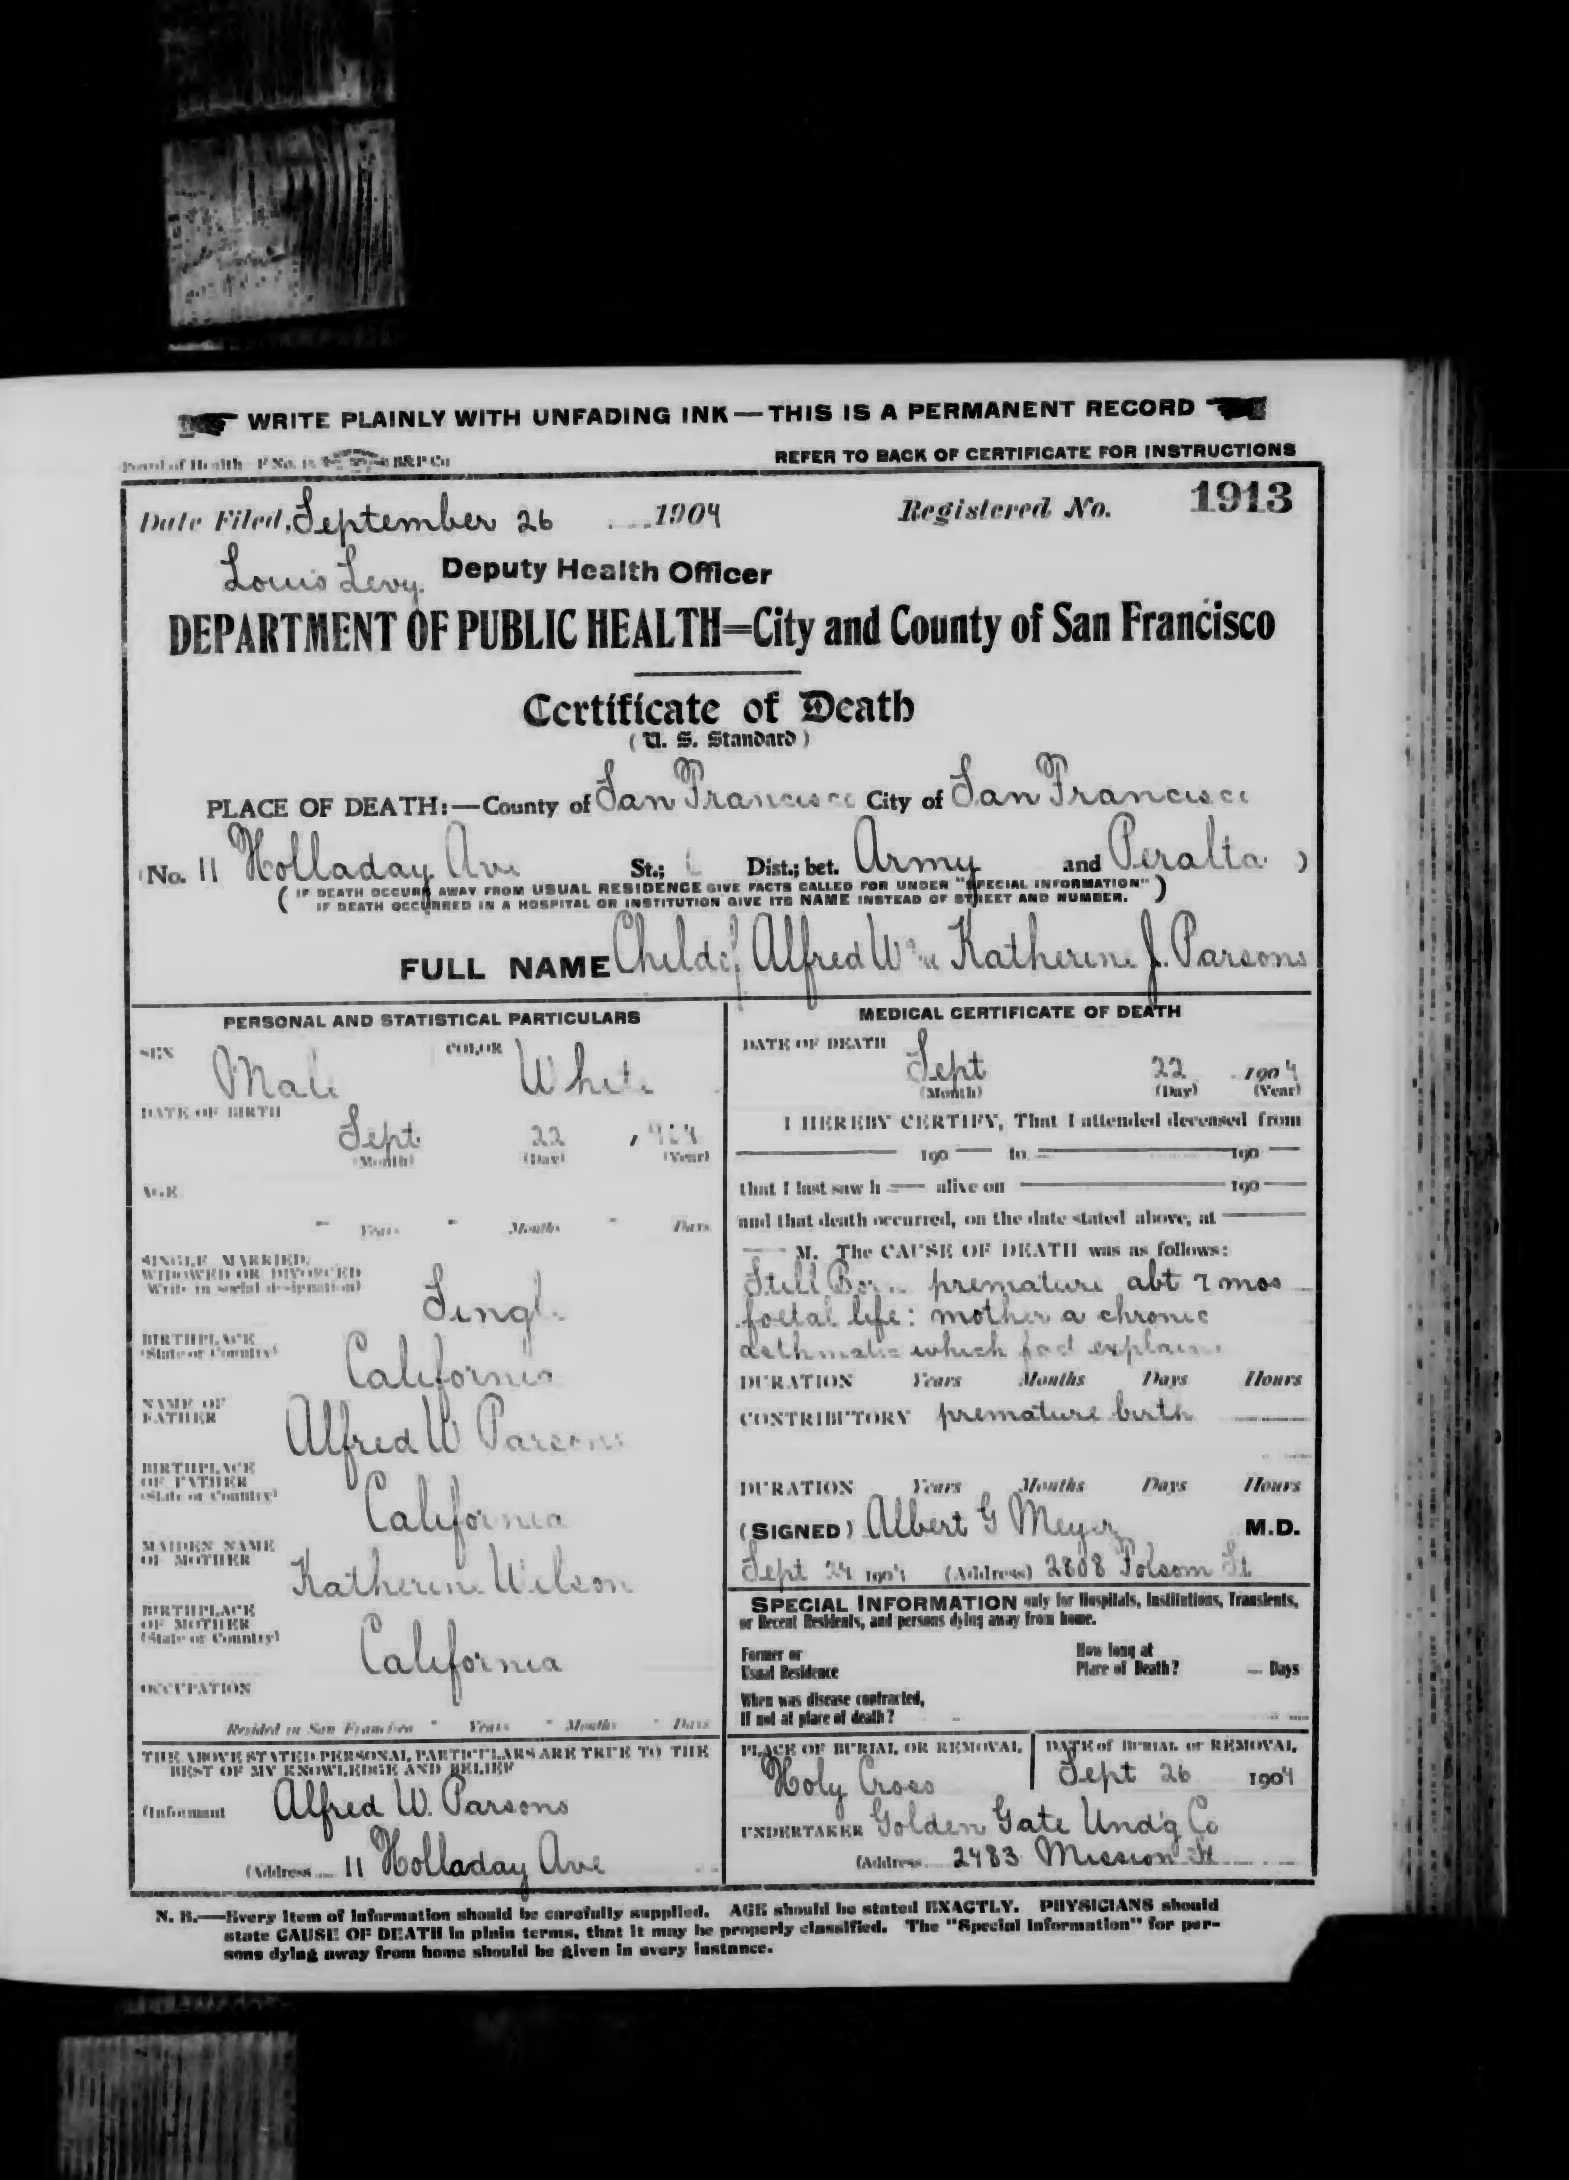 WRITE PLAINLY WITH UNFADING INK—THIS IS A PERMANENT RECORD
Board of Health B&P Co
REFER TO BACK OF CERTIFICATE FOR INSTRUCTIONS
Date Filed, September 26 1904 Registered No. 1913
Louis Levy. Deputy Health Officer
DEPARTMENT OF PUBLIC HEALTH=City and County of San Francisco
Certificate of Death
(U. S. Standard)
PLACE OF DEATH:—County of San Francisco City of San Francisco
(No. 11 Holladay Ave St.; Dist.; bet. Army and Peralta )
( IF DEATH OCCURS AWAY FROM USUAL RESIDENCE GIVE FACTS CALLED FOR UNDER "SPECIAL INFORMATION" )
( IF DEATH OCCURRED IN A HOSPITAL OR INSTITUTION GIVE ITS NAME INSTEAD OF STREET AND NUMBER. )
FULL NAME Child of Alfred W Katherine J. Parsons
PERSONAL AND STATISTICAL PARTICULARS
SEX Male COLOR White
DATE OF BIRTH
Sept 22, 1904
(Month) (Day) (Year)
AGE
" Years " Months " Days
SINGLE, MARRIED,
WIDOWED OR DIVORCED
(Write in social designation)
Single
BIRTHPLACE
(State or Country)
California
NAME OF
FATHER
Alfred W Parsons
BIRTHPLACE
OF FATHER
(State or Country)
California
MAIDEN NAME
OF MOTHER
Katherine Wilson
BIRTHPLACE
OF MOTHER
(State or Country)
California
OCCUPATION
Resided in San Francisco " Years " Months " Days
THE ABOVE STATED PERSONAL PARTICULARS ARE TRUE TO THE
BEST OF MY KNOWLEDGE AND BELIEF
(Informant Alfred W. Parsons
(Address 11 Holladay Ave
MEDICAL CERTIFICATE OF DEATH
DATE OF DEATH
Sept 22 1904
(Month) (Day) (Year)
I HEREBY CERTIFY, That I attended deceased from
— 190 — to — 190 —
that I last saw h — alive on — 190 —
and that death occurred, on the date stated above, at —
— M. The CAUSE OF DEATH was as follows:
Still Born premature abt 7 mos
foetal life: mother a chronic
asthmatic which fact explains
DURATION Years Months Days Hours
CONTRIBUTORY premature birth
DURATION Years Months Days Hours
(SIGNED) Albert G Meyer M.D.
Sept 24 1904 (Address) 2808 Folsom St
SPECIAL INFORMATION only for Hospitals, Institutions, Transients,
or Recent Residents, and persons dying away from home.
Former or
Usual Residence
How long at
Place of Death? — Days
When was disease contracted,
If not at place of death?
PLACE OF BURIAL OR REMOVAL
Holy Cross
DATE of BURIAL or REMOVAL
Sept 26 1904
UNDERTAKER Golden Gate Und'g Co
(Address 2483 Mission St
N. B.—Every item of information should be carefully supplied. AGE should be stated EXACTLY. PHYSICIANS should
state CAUSE OF DEATH in plain terms, that it may be properly classified. The "Special Information" for per-
sons dying away from home should be given in every instance.